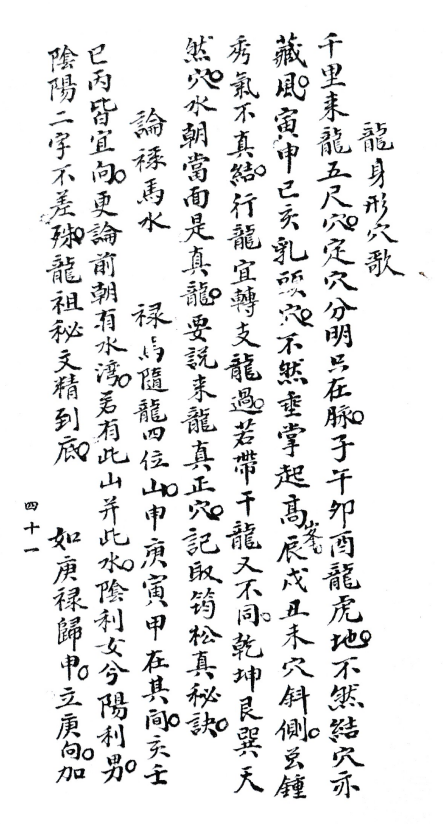 龍身形穴歌
千里来龍五尺穴。定穴分明只在脉。子午卯酉龍虎地。不然結穴亦
藏風。寅申巳亥乳頭穴。不然垂掌起高峯。辰戌丑未穴斜側。並鍾
秀氣不真結。行龍宜轉支龍過。若帶干龍又不同。乾坤艮巽天
然穴。水朝當面是真龍。要説来龍真正穴。記取筠松真秘訣。
論祿馬水 祿馬隨龍四位山。申庚寅甲在其間。亥壬
巳丙皆宜向。更論前朝有水湾。若有此山并此水。陰利女兮陽利男。
陰陽二字不差殊。龍祖秘文精到底。 如庚禄歸申。立庚向。加
四十一